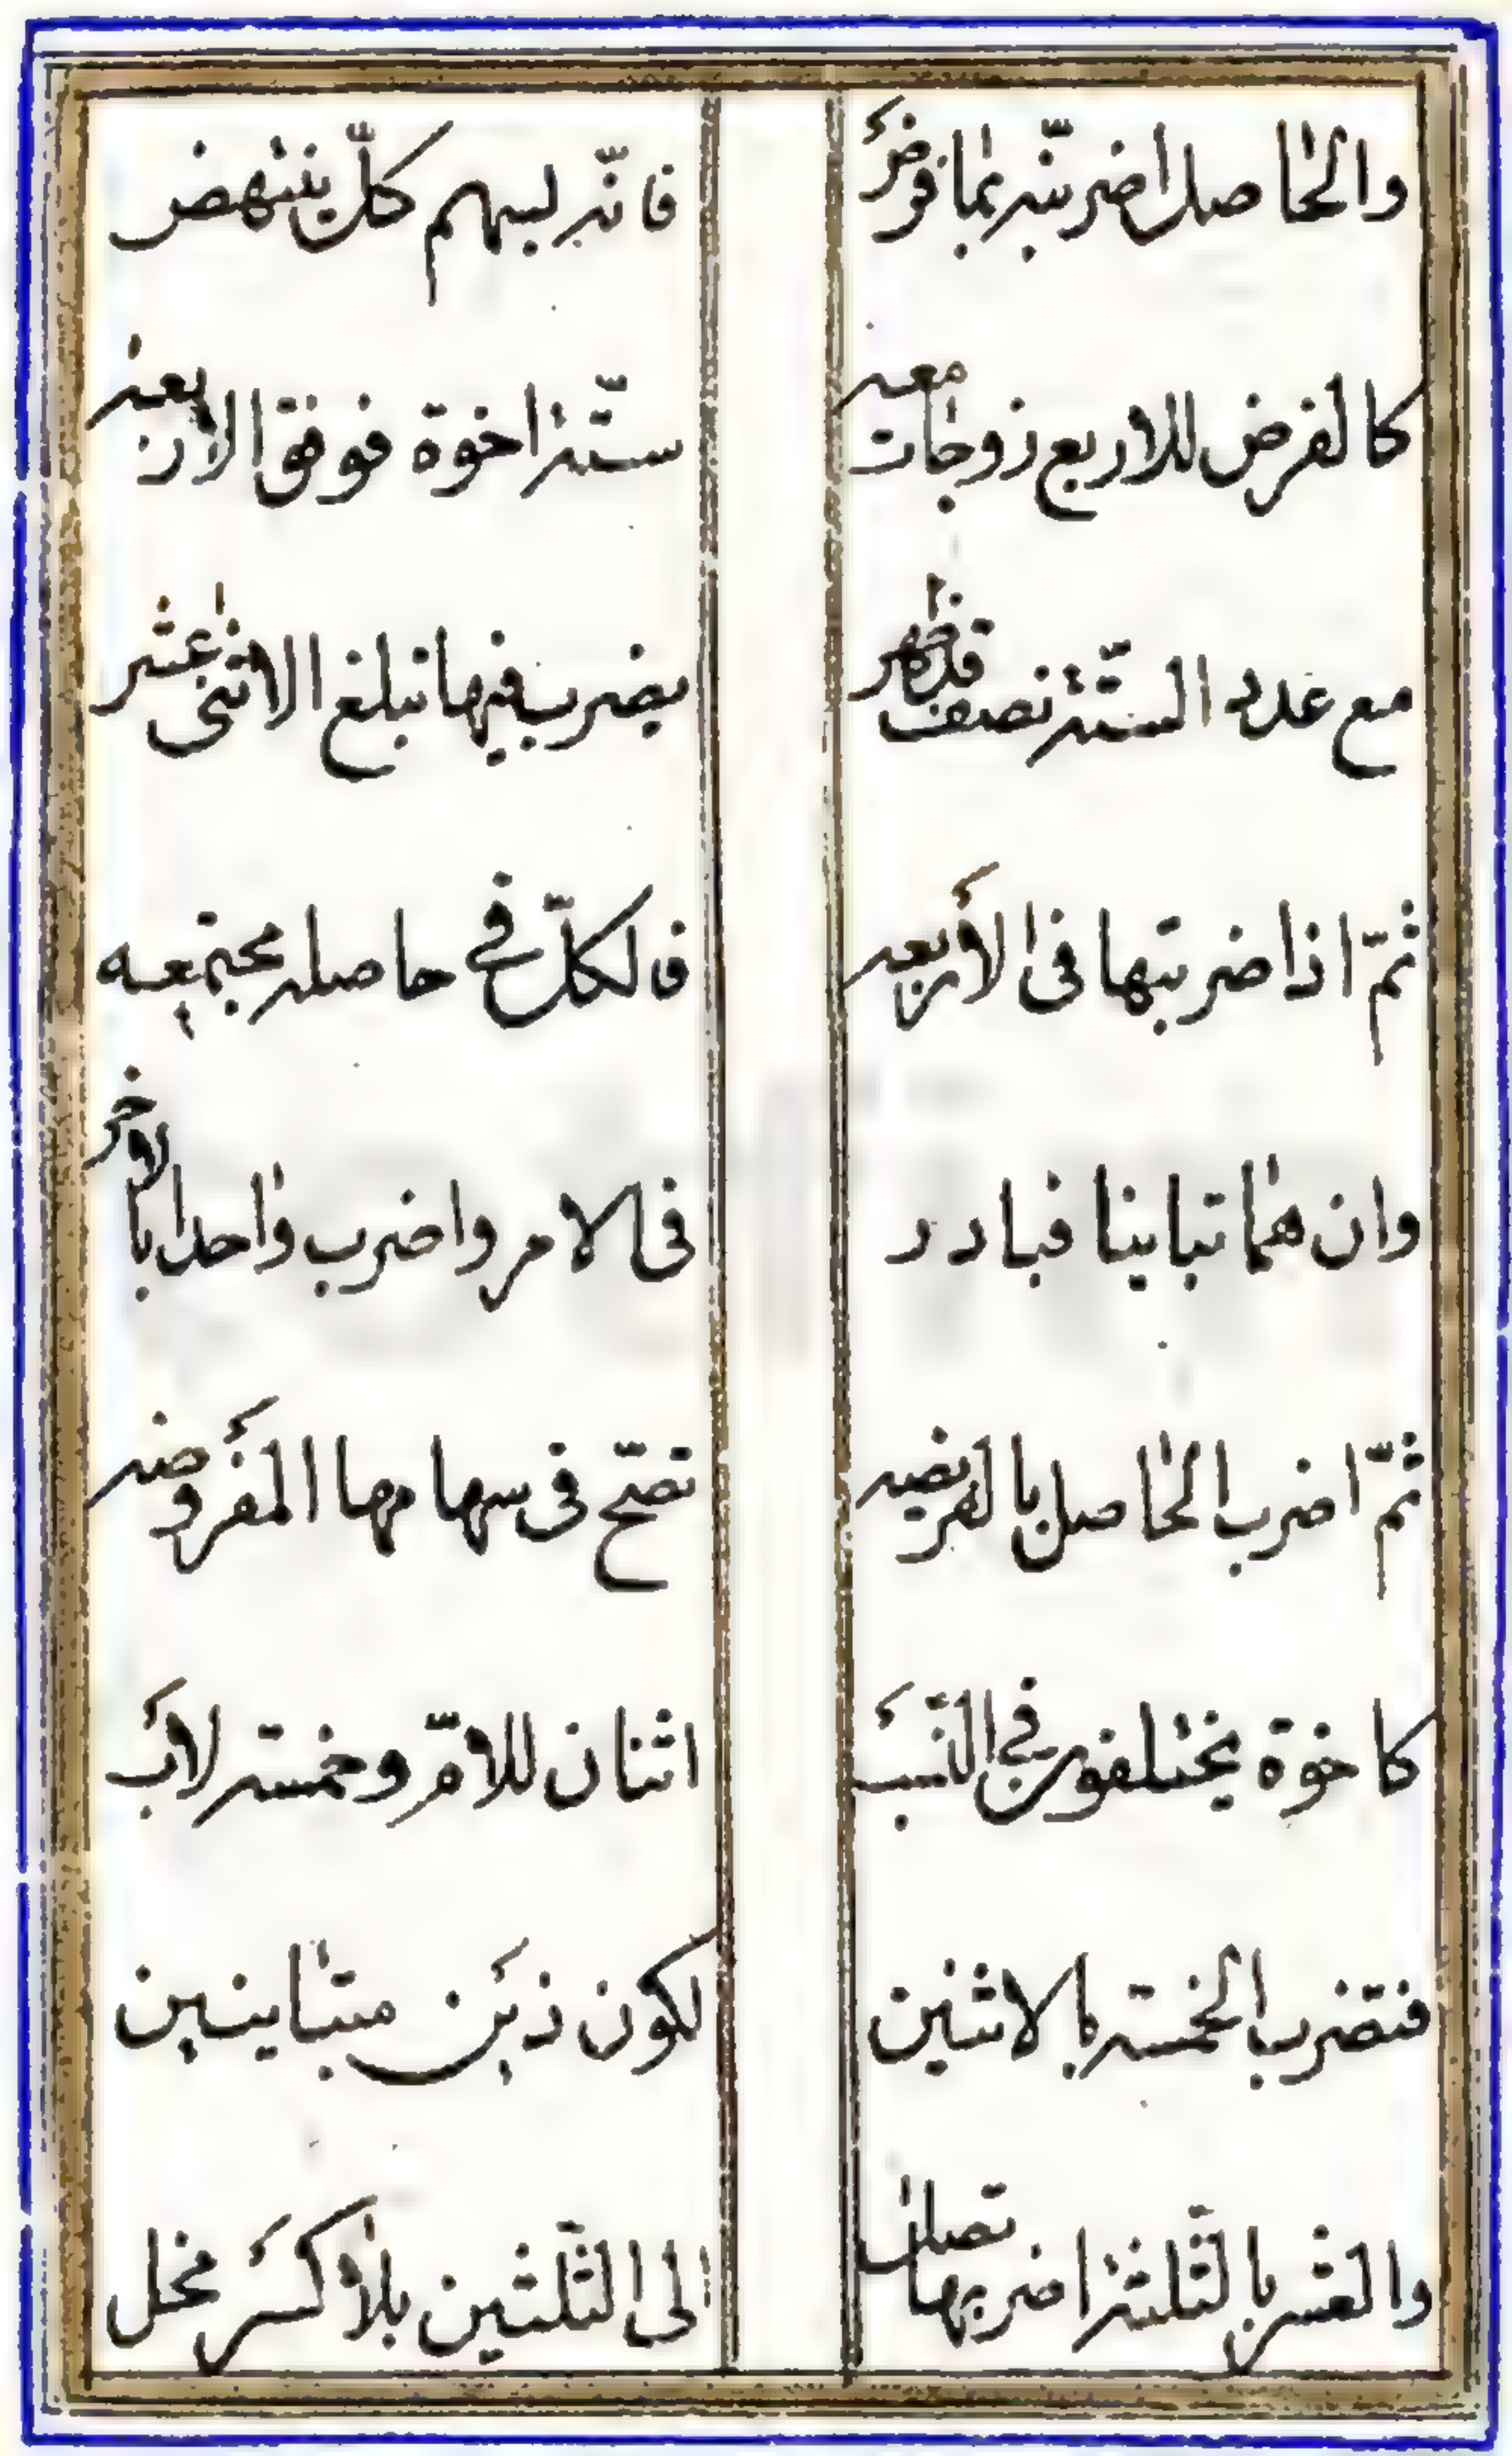 والحاصل اضربنه بما فرض
فانه لسهم كل ينتهض
كالفرض للاربع زوجات معه
ستة اخوة فوفق الاربعه
مع عدد الستة نصف قد ظهر
يضرب فيها تبلغ الاثنى عشر
ثمّ اذا ضربتها فى الأربعه
فالكلّ فى حاصله مجتمعه
وان هما تباينا فبادر
فى الامر واضرب واحدا بالاخر
ثمّ اضرب الحاصل بالفريضه
تصحّ فى سهامها المفروضه
كاخوة يختلفون في النّسب
اثنان للامّ وخمسة لاب
فتضرب الخمسة بالاثنين
لكون ذين متباينين
والعشر بالثّلثة اضربها تصل
الى الثّلثين بلا كسر مخل